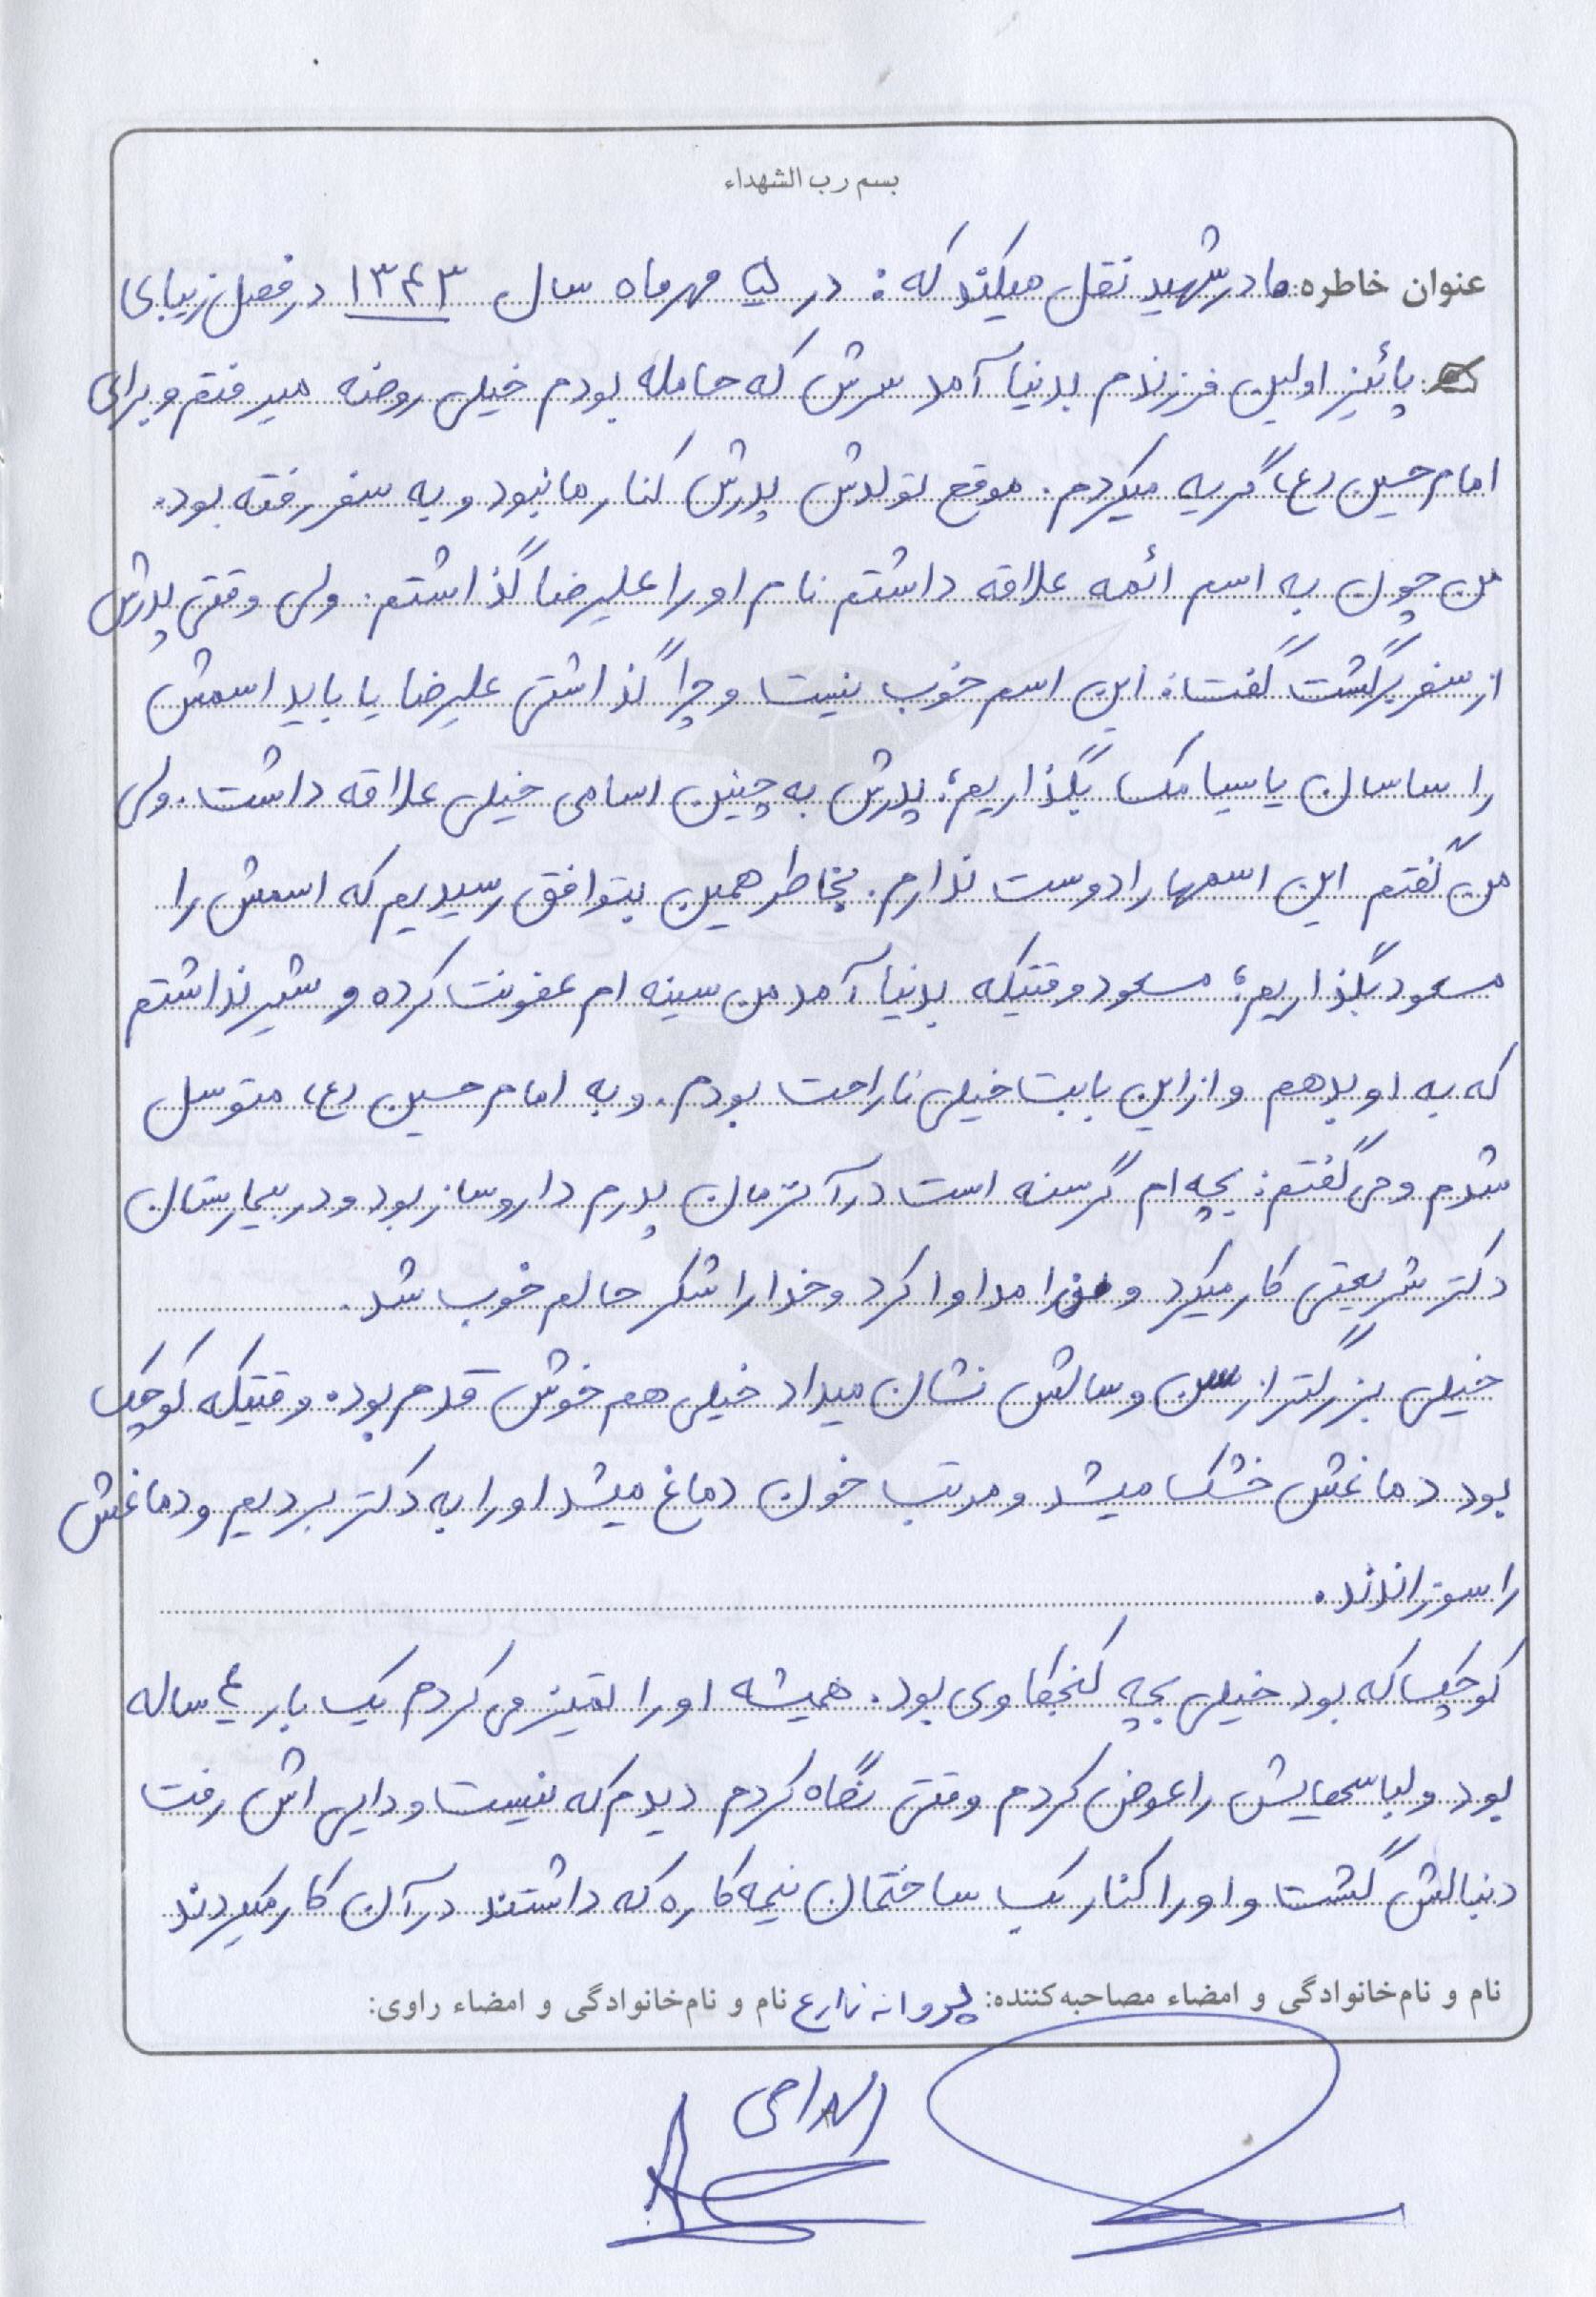 بسم رب الشهداء
عنوان خاطره: مادر شهید نقل میکند که: در ۵ مهرماه سال ۱۳۴۳ در فصل زیبای
پائیز اولین فرزندم بدنیا آمد سرش که حامله بودم خیلی روضه میرفتم و برای
امام حسین (ع) گریه میکردم. موقع تولدش پدرش کنار ما نبود و به سفر رفته بود.
من چون به اسم ائمه علاقه داشتم نام او را علیرضا گذاشتم. ولی وقتی پدرش
از سفر برگشت گفت: این اسم خوب نیست و چرا گذاشتی علیرضا یا باید اسمش
را ساسان یا سیامک بگذاریم؛ پدرش به چنین اسامی خیلی علاقه داشت. ولی
من گفتم این اسمها را دوست ندارم. بخاطر همین بتوافق رسیدیم که اسمش را
مسعود بگذاریم؛ مسعود وقتیکه بدنیا آمد من سینه ام عفونت کرده و شیر نداشتم
که به او بدهم و از این بابت خیلی ناراحت بودم. و به امام حسین (ع) متوسل
شدم و می گفتم: بچه ام گرسنه است در آنزمان پدرم داروساز بود و در بیمارستان
دکتر شریعتی کار میکرد و مرا مداوا کرد و خدا را شکر حالم خوب شد.
خیلی بزرگتر از سن و سالش نشان میداد خیلی هم خوش قدم بود. وقتیکه کوچک
بود دماغش خشک میشد و مرتب خون دماغ میشد او را به دکتر بردیم و دماغش
را سوزاندند.
کوچک که بود خیلی بچه کنجکاوی بود. همیشه او را تمیز می کردم یک بار ۴ ساله
بود و لباسهایش را عوض کردم وقتی نگاه کردم دیدم که نیست و دایی اش رفت
دنبالش گشت و او را کنار یک ساختمان نیمه کاره که داشتند در آن کار میکردند
نام و نام‌خانوادگی و امضاء مصاحبه‌کننده: پروانه زارع نام و نام‌خانوادگی و امضاء راوی: